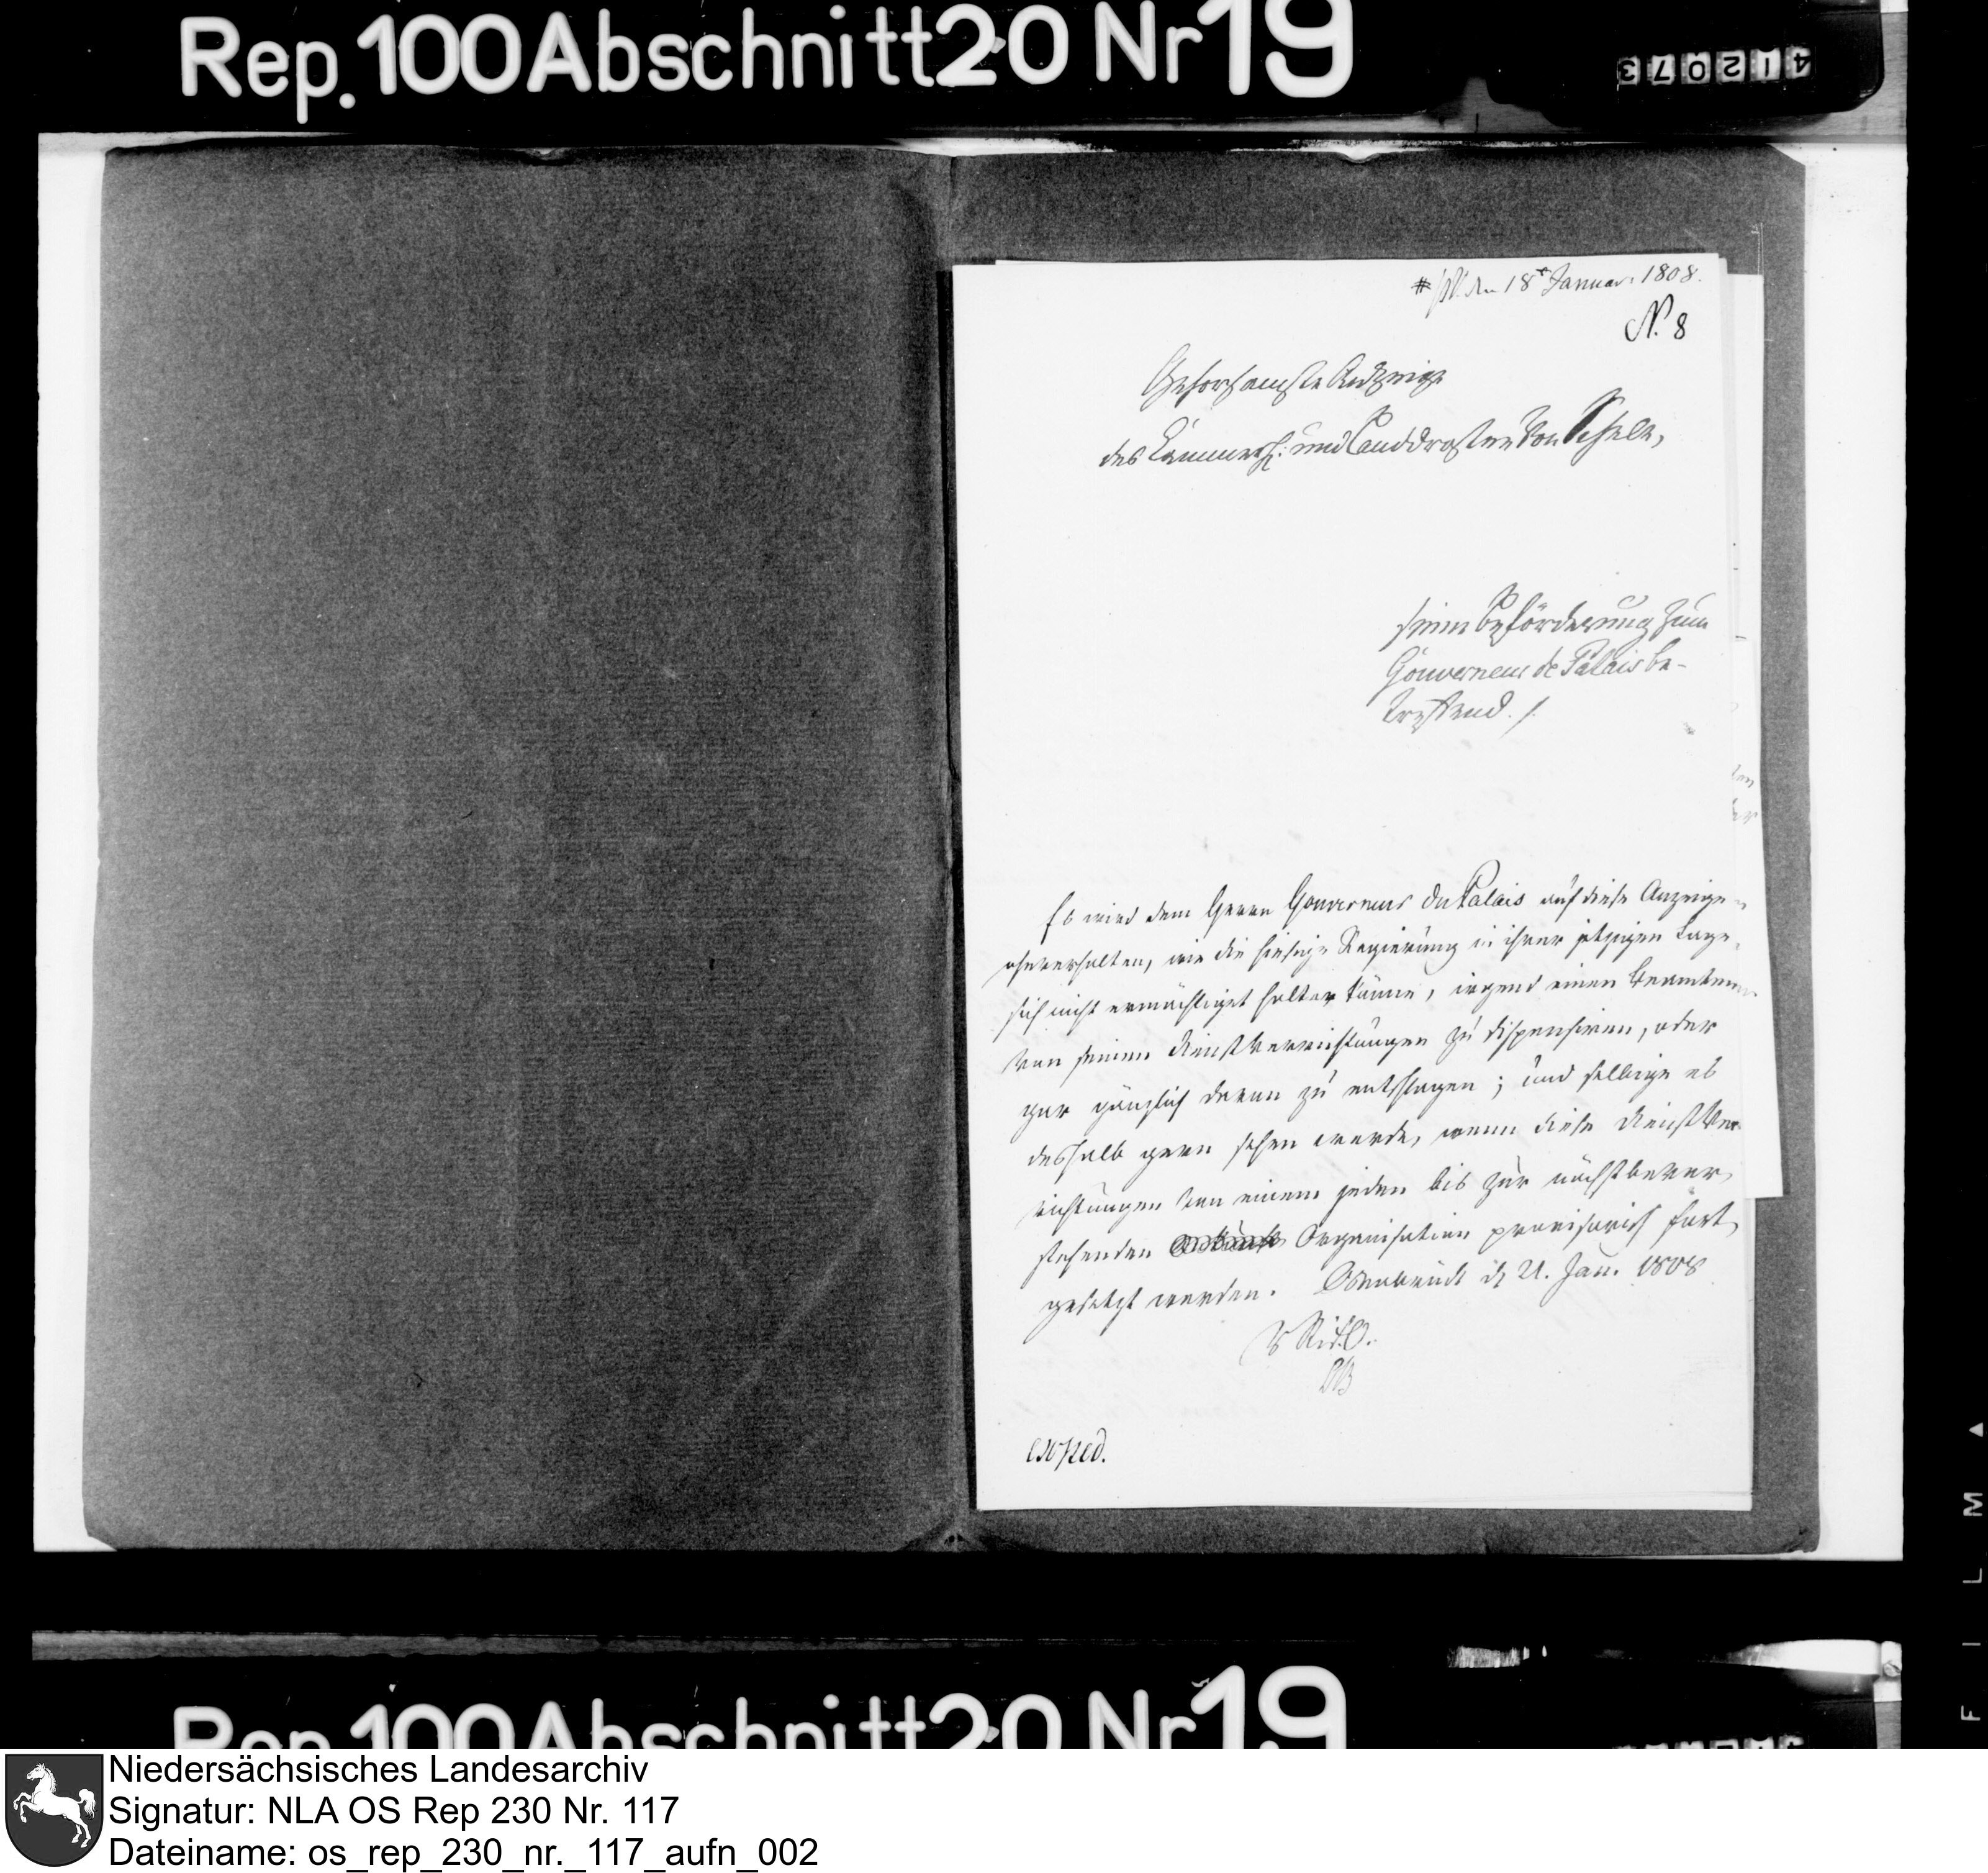 Rep. 100 Abschnitt 20 Nr 19
412073
# den 18t Januar. 1808.
N. 8
Gehorsamste Anzeige
des Cammerh: und Landdrosten von Schele,
seine Beförderung zum
Gouverneur de Palais be-
treffend. /.
Es wird dem Herrn Gouverneur du Palais auf diese Anzeige
ohnverhalten, wie die hiesige Regierung in ihrer jetzigen Lage
sich nicht ermächtiget halten könne, irgend einen Beamten
von seinen Dienstverrichtungen zu dispensiren, oder
gar gänzlich davon zu entschlagen; und selbige es
deshalb gern sehen werde, wenn diese Dienstver
richtungen von einem jeden bis zur nächstbevor
stehenden Organisation provisorisch fort
gesetzt werden. Osnabrück d 21. Jan. 1808
exped.
FILM
Rep. 100 Abschnitt 20 Nr 19
Niedersächsisches Landesarchiv
Signatur: NLA OS Rep 230 Nr. 117
Dateiname: os_rep_230_nr._117_aufn_002